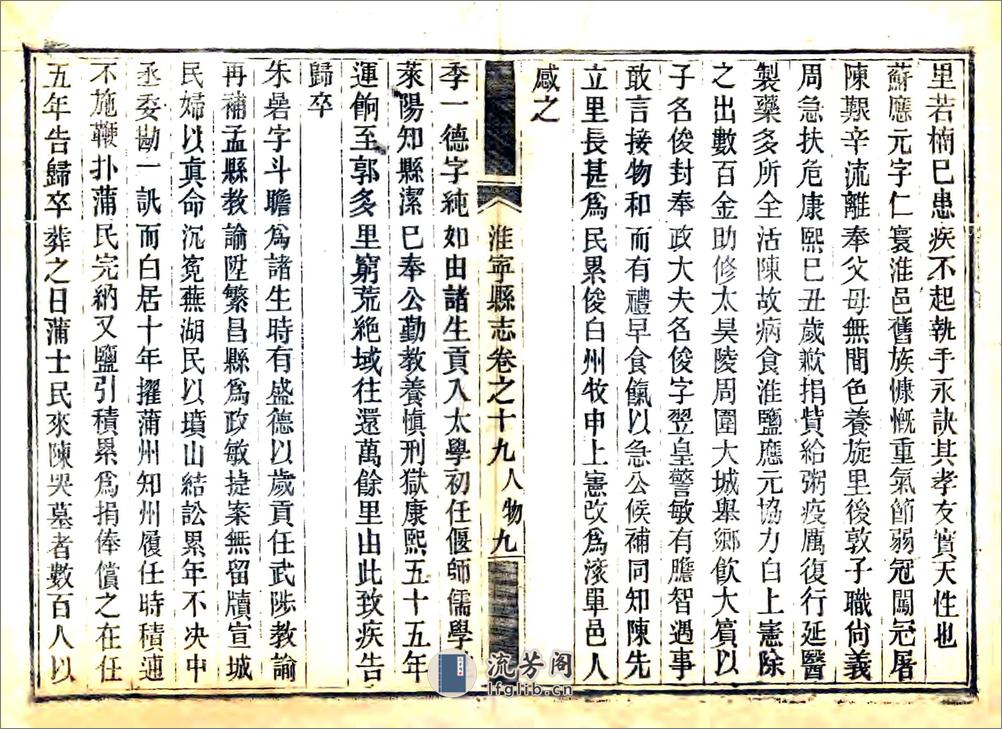 里若楠已患疾不起執手永訣其孝友實天性也
蘇應元字仁寰淮邑舊族慷慨重氣節弱冠闖冠屠
陳艱辛流離奉父母無間色養旋里後敦子職尙義
周急扶危康熙己丑歲歉捐貲給粥疫厲復行延醫
製藥多所全活陳故病食淮鹽應元協力白上憲除
之出數百金助修太昊陵周圍大城舉鄉飮大賓以
子名俊封奉政大夫名俊字翌皇警敏有膽智遇事
敢言接物和而有禮早食餼以急公候補同知陳先
立里長甚爲民累俊白州牧申上憲改爲滚單邑人
感之
淮寧縣志卷之十九 人物 九
季一德字純如由諸生貢入太學初任偃師儒學
萊陽知縣潔已奉公勤教養愼刑獄康熙五十五年
運餉至郭多里窮荒絶域往還萬餘里由此致疾告
歸卒
朱晷字斗瞻爲諸生時有盛德以歲貢任武陟教諭
再補孟縣教諭陞繁昌縣爲政敏捷案無留牘宣城
民婦以眞命沉寃蕪湖民以墳山結訟累年不决中
丞委勘一訊而白居十年擢蒲州知州履任時積逋
不施鞭扑蒲民完納又鹽引積累爲捐俸償之在任
五年告歸卒葬之日蒲士民來陳哭墓者數百人以
流芳阁
lfglib.cn